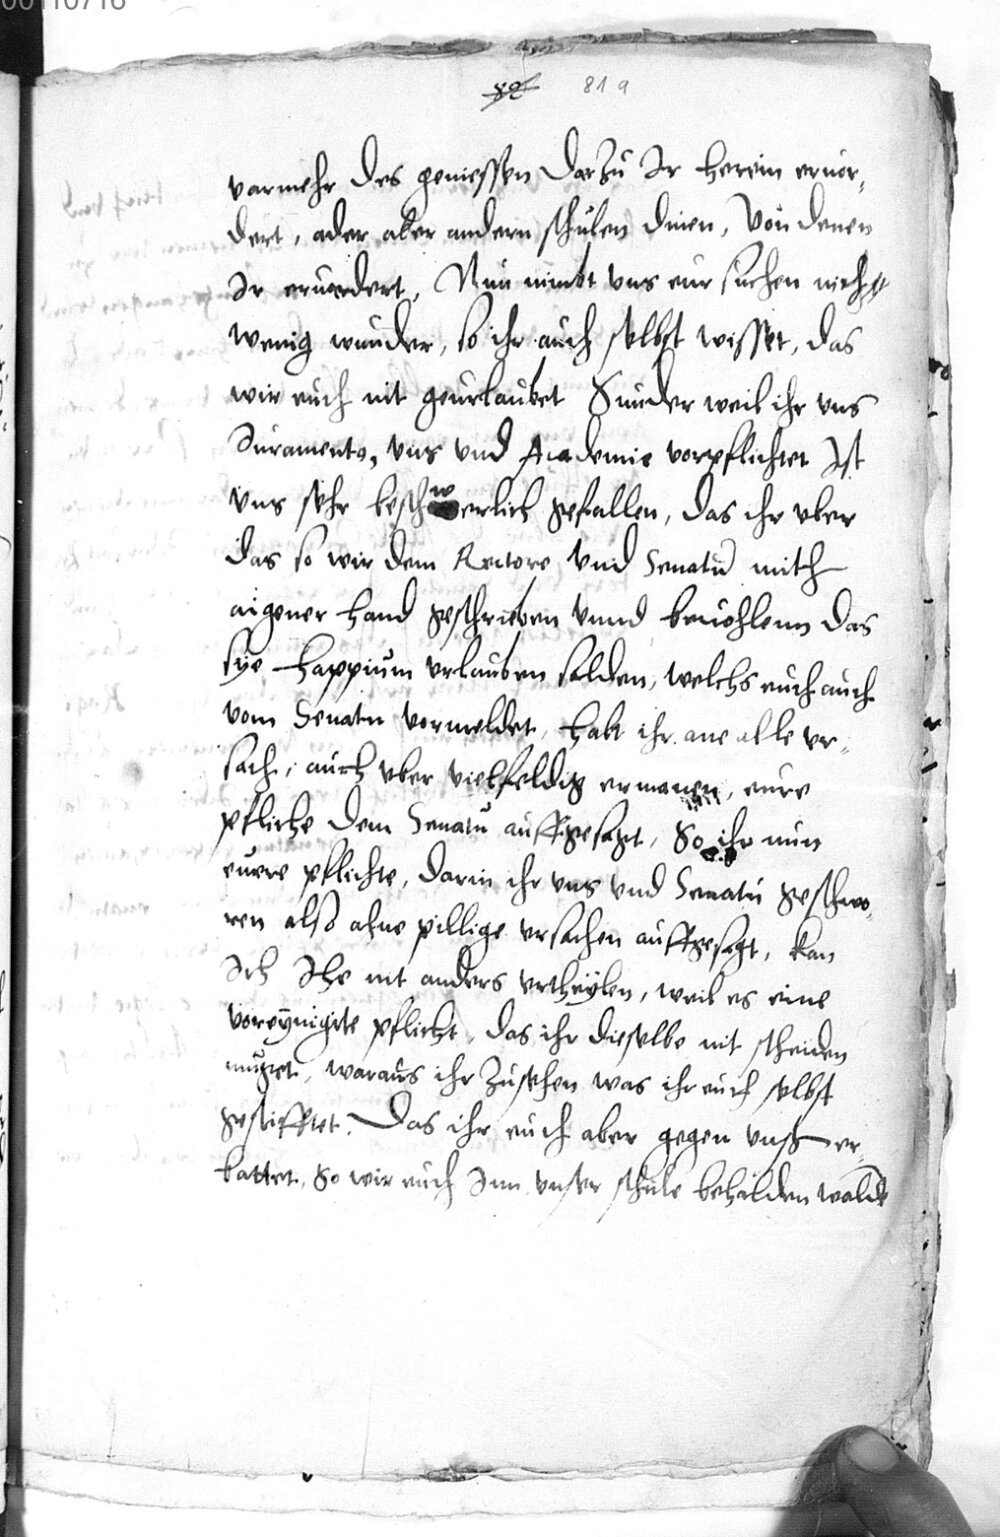 00110716
82 819
varmehr des geniessen darzu Ir herein eruor,
dert, ader aber andern schulen dinen, von denen
Ir eruordert, Nun nimbt vns eur suchen nicht
wenig wunder, so ihr auch selbst wisset, das
wir euch nit geurlaubet Sunder weil ihr vns
Juramento, vns vnd Academie vorpflichtet Ist
vns sehr beschwerlich gefallen, das ihr vber
das so wir dem Rectore vnd Senatu mith
aigener hand geschrieben vnnd beuohlenn das
sye Happium vrlauben solden, welchs euch auch
vom Senatu vormeldet, habt ihr ane alle vr,
sach, auch vber vielfeldig ermanen, eure
pflichte dem Senatu auffgesagt, So ihr nun
euere pflichte, darin ihr vns vnd Senatu geschwo,
ren also ahne pillige vrsachen auffgesagt, kan
Ich Ihe nit anders vrtheylen, weil es eine
voreynigite pflicht, das ihr dieselbe nit scheiden
muget, waraus ihr zusehen was ihr euch selbst
gestifftet. Das ihr euch aber gegen vnß er,
battet, So wir euch Inn vnser schule behalden wolde